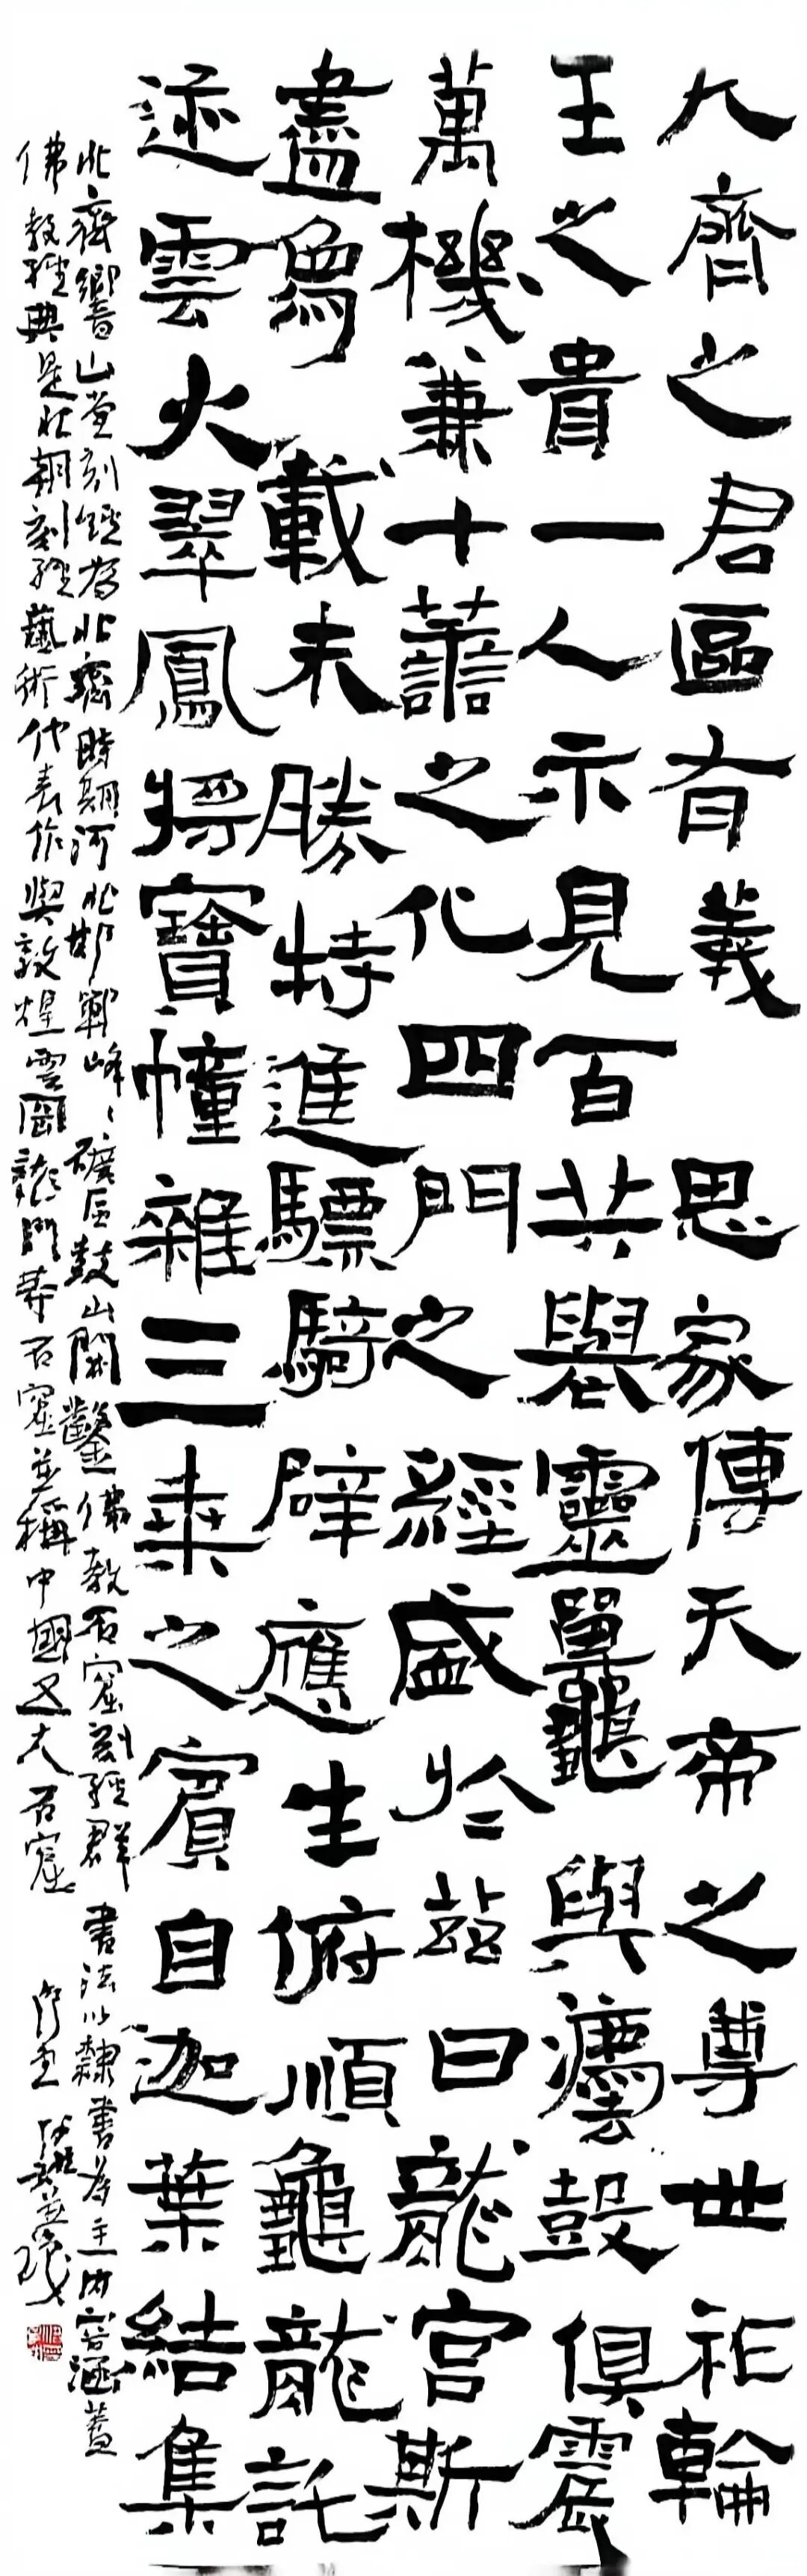 大齊之君區有義思家傳天帝之尊世祚輪
王之貴一人示見百共靈鼉與灋鼓俱震
萬機兼十譱之化四門之經盛於茲曰龍宮斯
盡爲載未勝特進驃騎辟應生俯順龜龍託
迹雲火翠鳳將寶幢雜三桒之賓自迦葉結集
北齊響山堂刻經爲北齊時期河北邯鄲峰峰礦區鼓山開鑿佛教石窟刻經群書法以隸書爲主內容涵蓋
佛教經典是北朝刻經藝術代表作與敦煌雲岡龍門等石窟並稱中國五大石窟